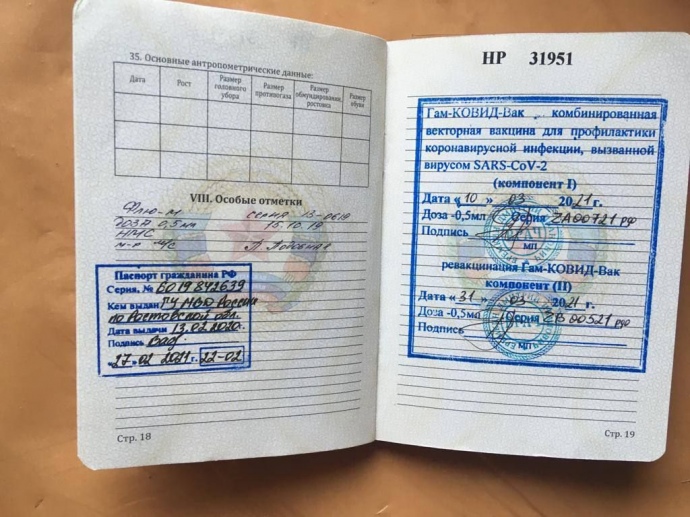 35. Основные антропометрические данные:
Дата Рост Размер головного убора Размер противогаза Размер обмундирования, ростовка Размер обуви
VIII. Особые отметки
Флю-М серия 13-0619
доза 0,5мл 15.10.19
НМС
м-р м/с
Паспорт гражданина РФ
Серия, № 6019 842639
Кем выдан ГУ МВД России
по Ростовской обл.
Дата выдачи 13.02.2020г.
Подпись
«27» 02 2021 г. 22-02
Стр. 18
НР 31951
Гам-КОВИД-Вак комбинированная
векторная вакцина для профилактики
коронавирусной инфекции, вызванной
вирусом SARS-CoV-2
(компонент I)
Дата «10» 03 2021 г.
Доза -0,5мл Серия
Подпись
МП
ревакцинация Гам-КОВИД-Вак
компонент (II)
Дата «31» 03 2021 г.
Доза -0,5мл Серия
Подпись
МП
Стр. 19